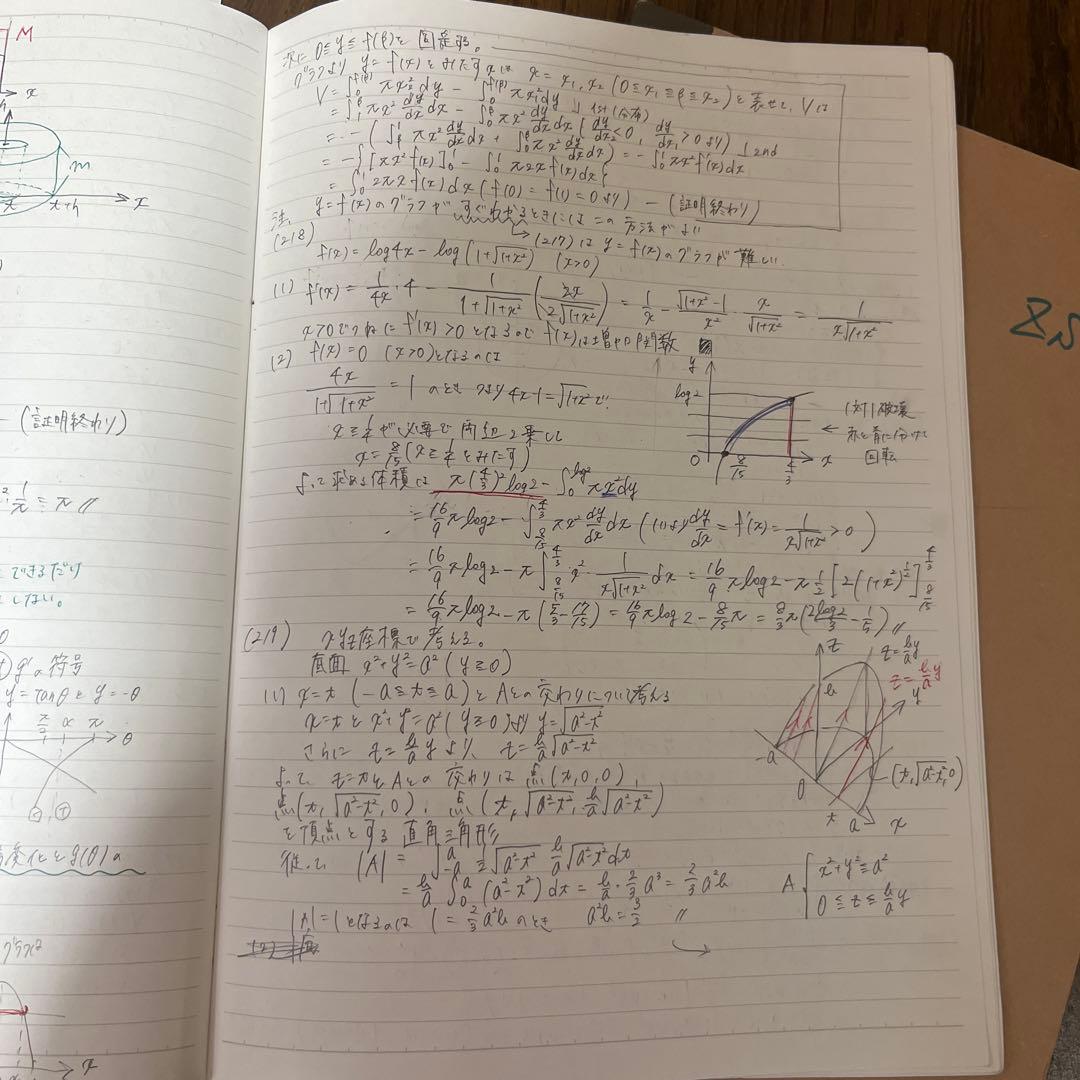 M
x
m
t
t+h
x
次に 0≦y≦f(β)を固定する。
グラフより y=f(x) をみたす xは x=x₁, x₂ (0≦x₁≦β≦x₂) と表せて、Vは
V=∫₀^{f(β)} πx₂²dy − ∫₀^{f(β)} πx₁²dy
=∫₁^β πx² dy/dx dx − ∫₀^β πx² dy/dx dx (dy/dx₂<0, dy/dx₁>0 より)
=−(∫_β^1 πx² dy/dx dx + ∫₀^β πx² dy/dx dx) = −∫₀¹ πx²f'(x)dx
2nd
=−{[πx²f(x)]₀¹ − ∫₀¹ π2x f(x)dx}
=∫₀¹ 2πx f(x)dx (f(0)=f(1)=0より) — (証明終わり)
注. y=f(x)のグラフがすぐわかるときにはこの方法がよい
→(217)は y=f(x)のグラフが難しい.
(218)
f(x)=log4x−log(1+√(1+x²)) (x>0)
(1) f'(x)=1/4x・4 − 1/(1+√(1+x²)) (2x/2√(1+x²)) = 1/x − (√(1+x²)−1)/x² ・ x/√(1+x²) = 1/(x√(1+x²))
x>0でつねに f'(x)>0となるので f(x)は増加関数
(2) f(x)=0 (x>0)となるのは
4x/(1+√(1+x²)) = 1 のとき つまり 4x−1=√(1+x²)で
x≧1/4 が必要で両辺2乗して
x=8/15 (x≧1/4 をみたす)
y
log2
0
8/15
4/3
x
← 破壊
赤と青に分けて
回転
よって求める体積は π(4/3)²log2 − ∫₀^{log2} πx²dy
=16/9 πlog2 − ∫_{8/15}^{4/3} πx² dy/dx dx ((1)より dy/dx = f'(x)=1/(x√(1+x²))>0)
=16/9 πlog2 − π∫_{8/15}^{4/3} x²・1/(x√(1+x²)) dx = 16/9 πlog2 − π1/2[2(1+x²)^{1/2}]_{8/15}^{4/3}
=16/9 πlog2 − π(5/3−17/15) = 16/9 πlog2 − 8/15π = 8/3π(2log2/3 − 1/5) //
(219) xyz座標で考える。
底面 x²+y²=a² (y≧0)
(1) x=t (−a≦t≦a)とAとの交わりについて考える
x=tと x²+y²=a² (y≧0)より y=√(a²−t²)
これに z=b/a y より z=b/a √(a²−t²)
よって x=tとAとの交わりは 点(t,0,0),
点(t,√(a²−t²),0), 点(t,√(a²−t²), b/a √(a²−t²))
を頂点とする直角三角形
従って |A|=∫_{−a}^{a} 1/2 √(a²−t²) b/a √(a²−t²) dt
=b/a ∫₀^a (a²−t²)dt = b/a・2/3 a³ = 2/3 a²b
|A|=1となるのは 1=2/3 a²b のとき a²b=3/2 //
z
b
z=b/a y
z=b/a y
y
−a
0
t
a
x
(t,√(a²−t²),0)
A { x²+y²≦a²
0≦z≦b/a y
(証明終わり)
できるだけ
しない。
g'の符号
y=tanθ と y=−θ
π/2 α π
θ
変化と g(θ)の
グラフは
x